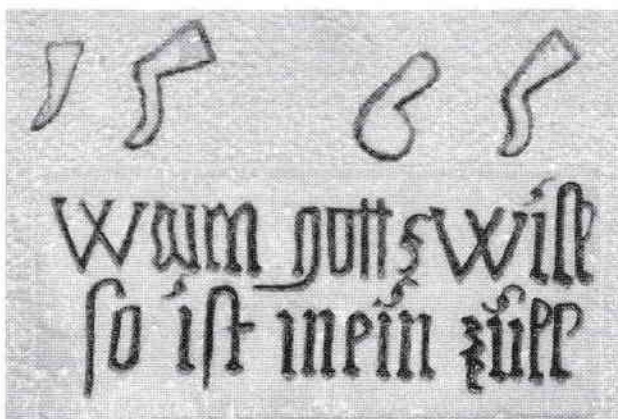 1 5 6 5
Wann gotts Will
so ist mein züll